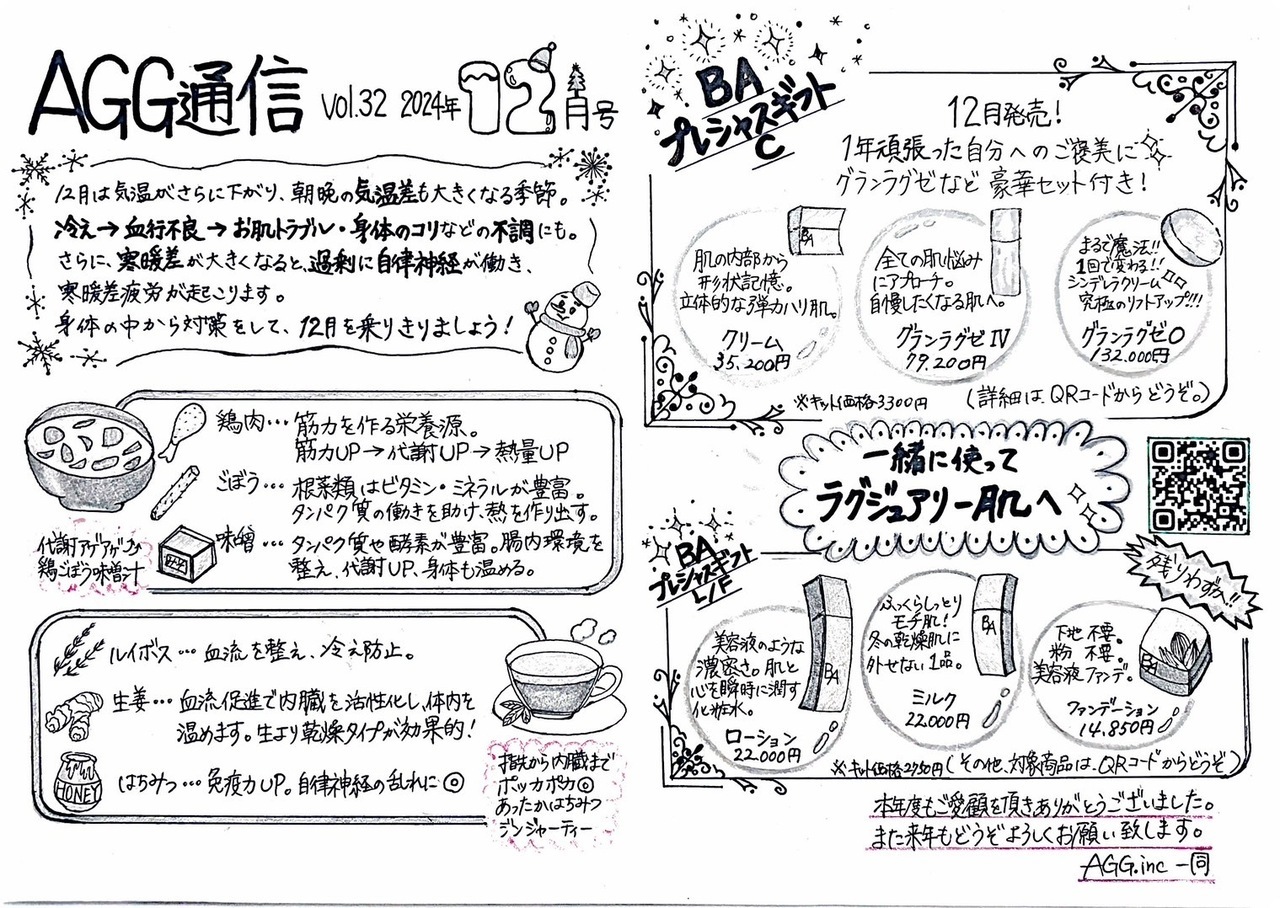 AGG通信 vol.32 2024年 12月号
12月は気温がさらに下がり、朝晩の気温差も大きくなる季節。
冷え→血行不良→お肌トラブル・身体のコリなどの不調にも。
さらに、寒暖差が大きくなると、過剰に自律神経が働き、
寒暖差疲労が起こります。
身体の中から対策をして、12月を乗りきりましょう!
鶏肉… 筋力を作る栄養源。
筋力UP→代謝UP→熱量UP
ごぼう… 根菜類はビタミン・ミネラルが豊富。
タンパク質の働きを助け、熱を作り出す。
味噌… タンパク質や酵素が豊富。腸内環境を
整え、代謝UP、身体も温める。
代謝アゲアゲ
鶏ごぼう味噌汁
ルイボス…血流を整え、冷え防止。
生姜…血流促進で内臓を活性化し、体内を
温めます。生より乾燥タイプが効果的!
はちみつ…免疫力UP。自律神経の乱れに◎
HONEY
指先から内臓まで
ポッカポカ◎
あったかはちみつ
ジンジャーティー
BA
プレシャスギフト
C
12月発売!
1年頑張った自分へのご褒美に
グランラグゼなど豪華セット付き!
BA
肌の内部から
形状記憶。
立体的な弾力ハリ肌。
クリーム
35,200円
全ての肌悩み
にアプローチ。
自慢したくなる肌へ。
グランラグゼⅣ
79,200円
まるで魔法!!
1回で変わる!!
シンデレラクリーム
究極のリフトアップ!!!
グランラグゼO
132,000円
※キット価格3300円
(詳細は、QRコードからどうぞ。)
一緒に使って
ラグジュアリー肌へ
BA
プレシャスギフト
L/F
残りわずか!!
美容液のような
濃密さ。肌と
心を瞬時に潤す
化粧水。
ローション
22,000円
BA
ふっくらしっとり
モチ肌!
冬の乾燥肌に
外せない1品。
ミルク
22,000円
BA
下地不要。
粉不要。
美容液ファンデ。
ファンデーション
14,850円
BA
※キット価格2750円(その他、対象商品は、QRコードからどうぞ)
本年度もご愛顧を頂きありがとうございました。
また来年もどうぞよろしくお願い致します。
AGG.inc 一同